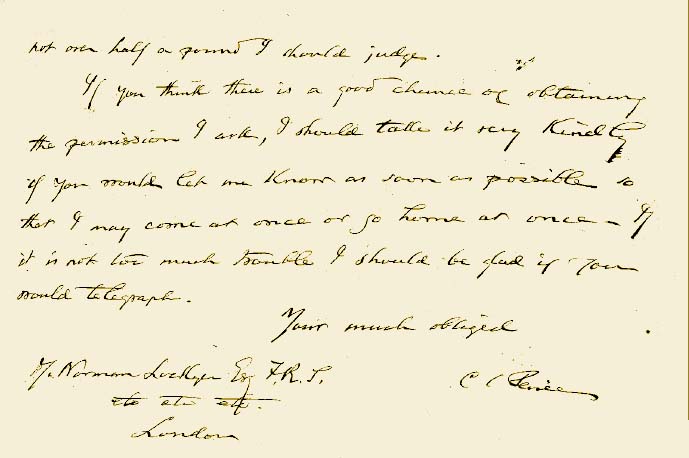 not over half a pound I should judge.
If you think there is a good chance of obtaining
the permission I ask, I should take it very kindly
if you would let me know as soon as possible so
that I may come at once or go home at once – If
it is not too much trouble I should be glad if you
would telegraph.
Yours much obliged
Norman Lockyer Esq F.R.S.
C S Peirce
etc etc etc.
London